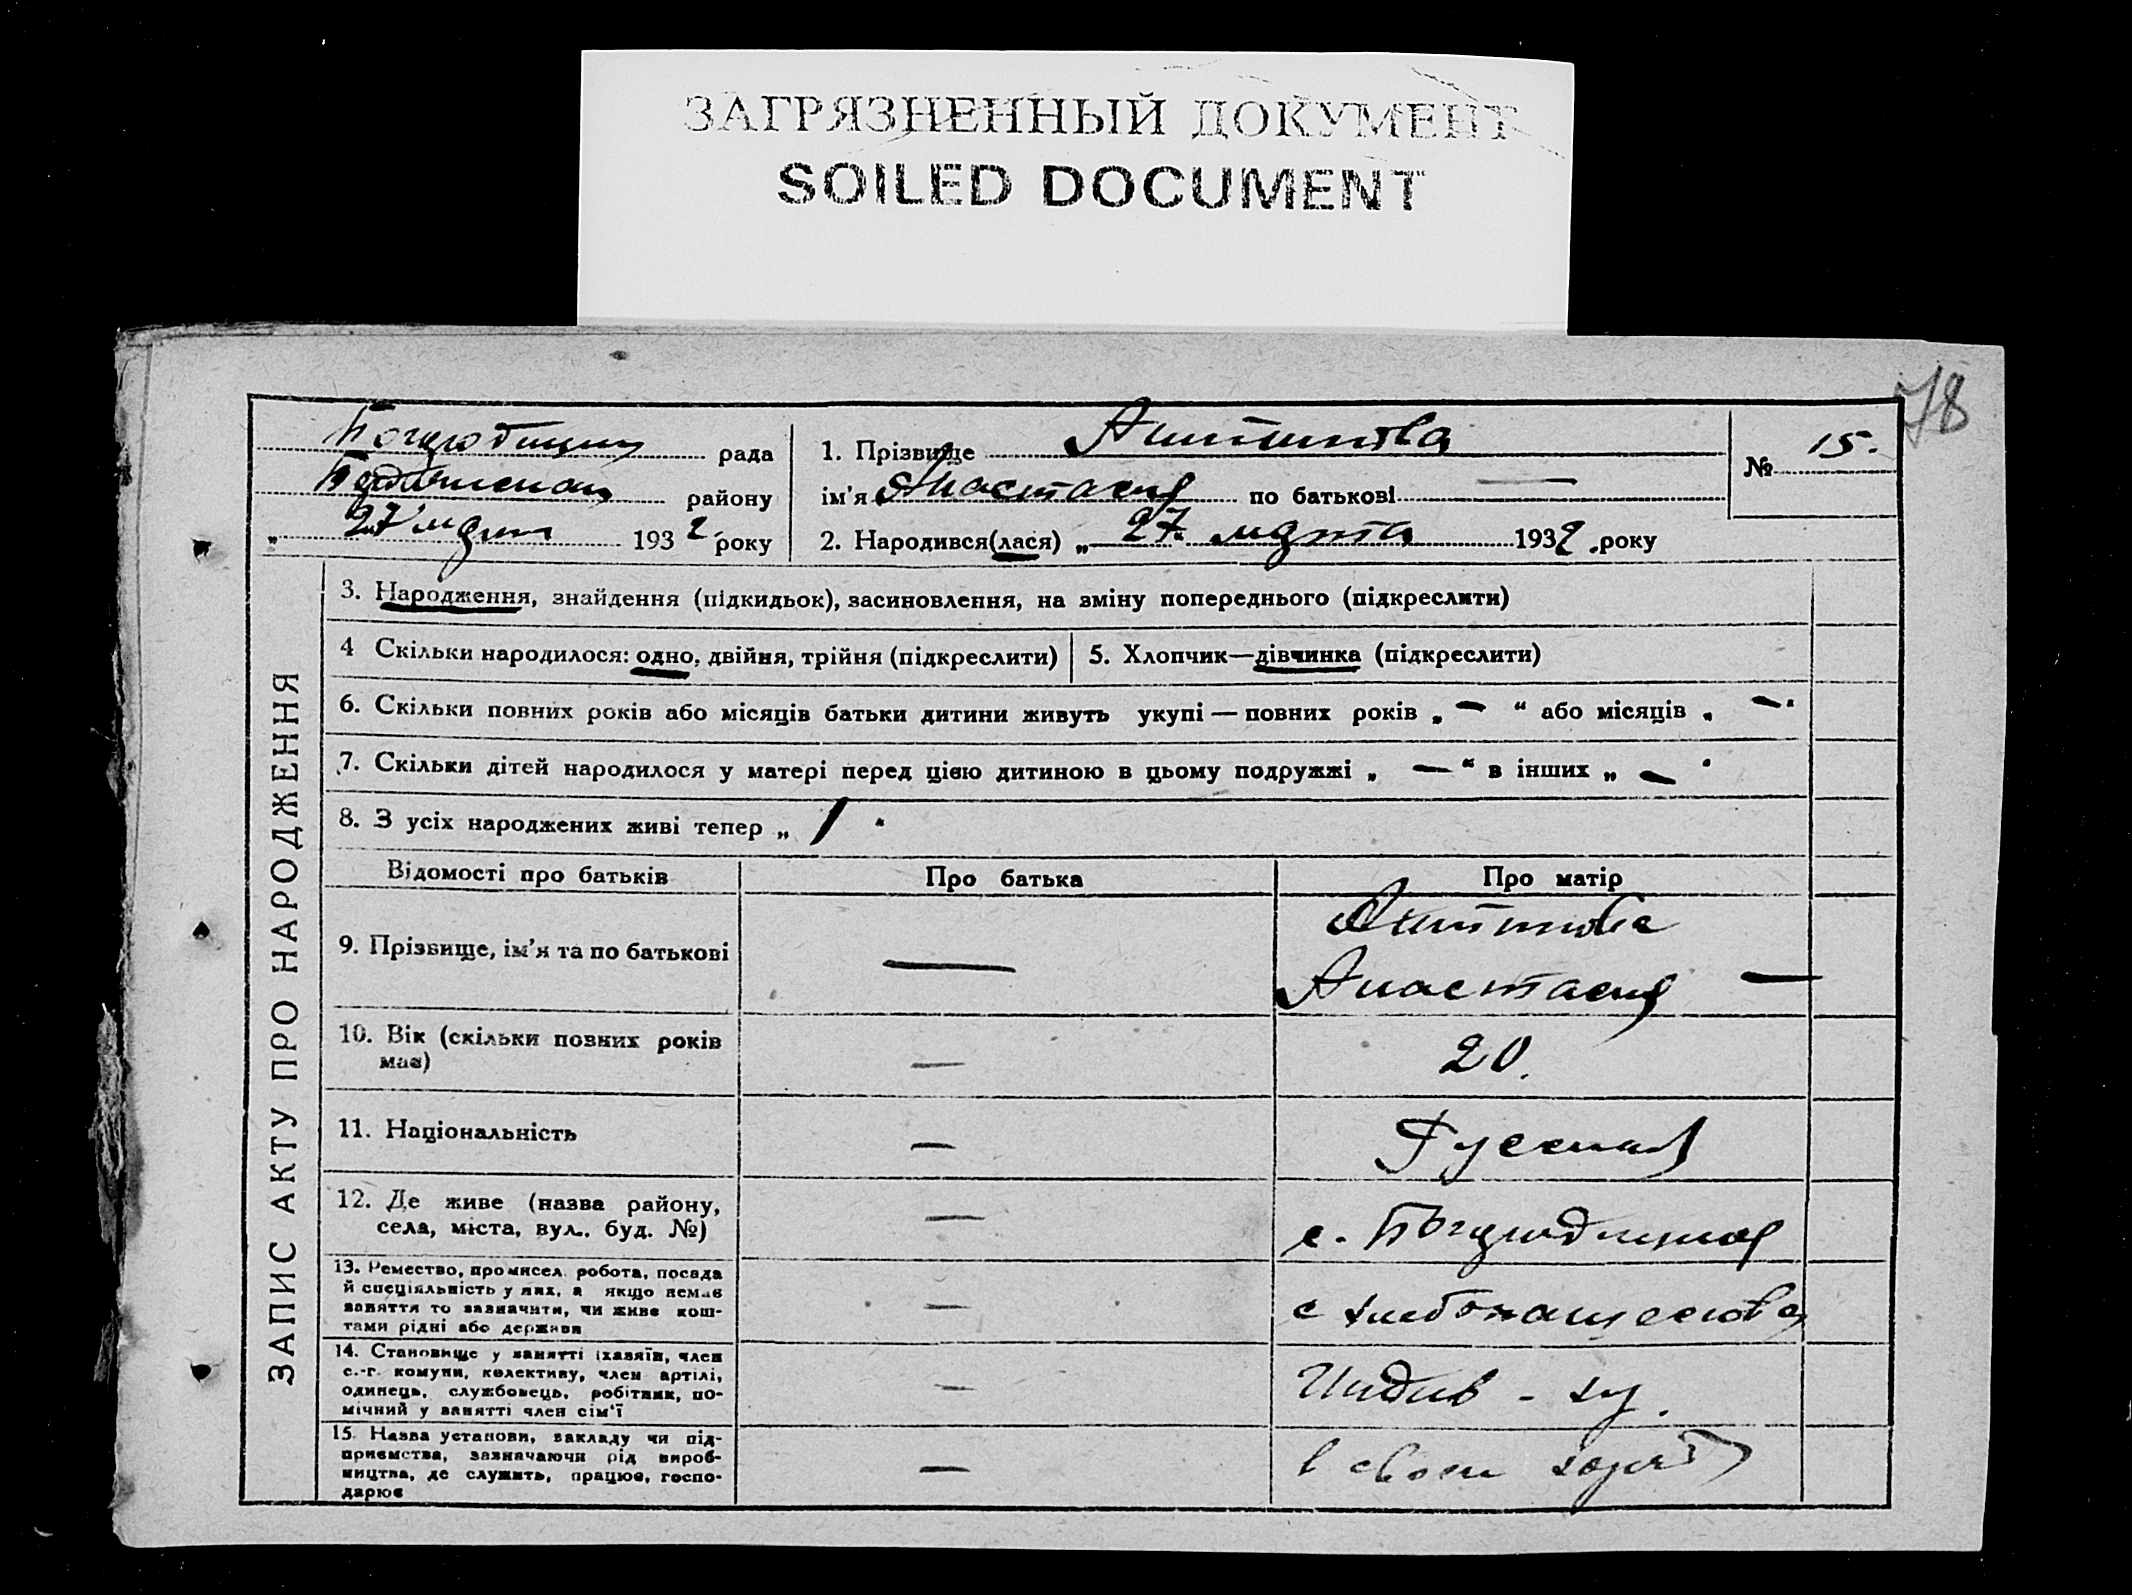 ЗАГРЯЗНЕННЫЙ ДОКУМЕНТ
SOILED DOCUMENT
78
рада
району
„ 27 марта 1932 року
1. Прізвище
ім'я Анастасия по батькові —
2. Народився(лася) „ 27 марта 1932 року
№ 15.
ЗАПИС АКТУ ПРО НАРОДЖЕННЯ
3. Народження, знайдення (підкидьок), засиновлення, на зміну попереднього (підкреслити)
4 Скільки народилося: одно, двійня, трійня (підкреслити)
5. Хлопчик—дівчинка (підкреслити)
6. Скільки повних років або місяців батьки дитини живуть укупі — повних років „ — “ або місяців „ — “
7. Скільки дітей народилося у матері перед цією дитиною в цьому подружжі „ — “ в інших „ — “
8. З усіх народжених живі тепер „ 1 “
Відомості про батьків
Про батька
Про матір
9. Прізвище, ім'я та по батькові
—
Анастасия —
10. Вік (скільки повних років
має)
—
20.
11. Національність
—
Русская
12. Де живе (назва району,
села, міста, вул. буд. №)
—
с.
13. Ремество, промисел, робота, посада
й спеціяльність у них, а якщо немає
заняття то зазначити, чи живе кош-
тами рідні або держави
—
с хлебопашества
14. Становище у занятті (хазяїн, член
с.-г. комуни, колективу, член артілі,
одинець, службовець, робітник, по-
мічний у занятті член сім'ї
—
Индив - ху.
15. Назва установи, закладу чи під-
приємства, зазначаючи рід вироб-
ництва, де служить, працює, госпо-
дарює
—
в своем хозяйст